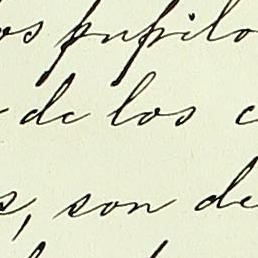 os pupilo
de los c
s, son de